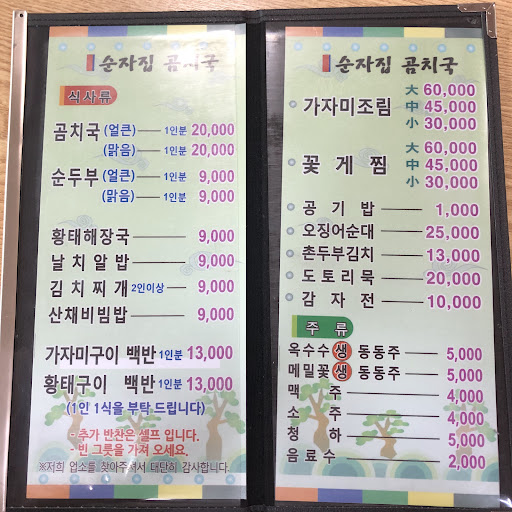 순자집 곰치국
식사류
곰치국 (얼큰) 1인분 20,000
(맑음) 1인분 20,000
순두부 (얼큰) 1인분 9,000
(맑음) 1인분 9,000
황태해장국 9,000
날치알밥 9,000
김치찌개 2인이상 9,000
산채비빔밥 9,000
가자미구이 백반 1인분 13,000
황태구이 백반 1인분 13,000
(1인 1식을 부탁 드립니다)
- 추가 반찬은 셀프 입니다.
- 빈 그릇을 가져 오세요.
※저희 업소를 찾아주셔서 대단히 감사합니다.
순자집 곰치국
가자미조림 大 60,000
中 45,000
小 30,000
꽃게찜 大 60,000
中 45,000
小 30,000
공기밥 1,000
오징어순대 25,000
촌두부김치 13,000
도토리묵 20,000
감자전 10,000
주류
옥수수 생 동동주 5,000
메밀꽃 생 동동주 5,000
맥주 4,000
소주 4,000
청하 5,000
음료수 2,000